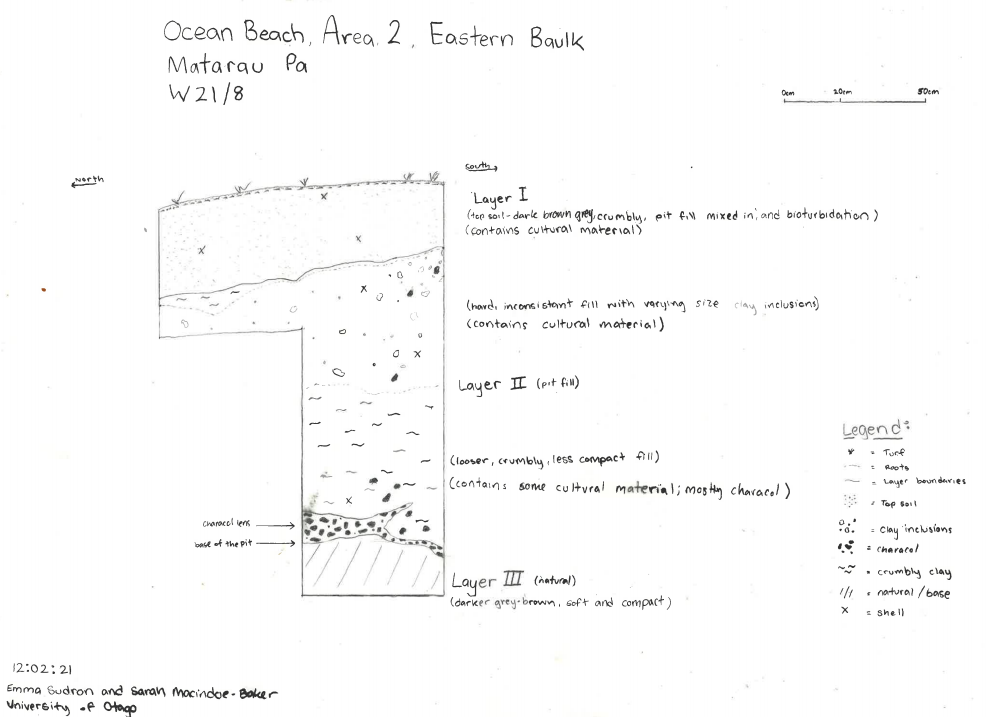 Ocean Beach, Area 2, Eastern Baulk
Matarau Pa
W21/8
0cm 20cm 50cm
North
South
Layer I
(top soil - dark brown grey, crumbly, pit fill mixed in, and bioturbidation)
(contains cultural material)
(hard, inconsistant fill with varying size clay inclusions)
(contains cultural material)
Layer II (pit fill)
(looser, crumbly, less compact fill)
(contains some cultural material; mostly characol)
characol lens
base of the pit
Layer III (natural)
(darker grey-brown, soft and compact)
Legend:
= Turf
= Roots
= Layer boundaries
= Top soil
= clay inclusions
= characol
= crumbly clay
= natural/base
x = shell
12:02:21
Emma Sudron and Sarah Macindoe-Baker
University of Otago